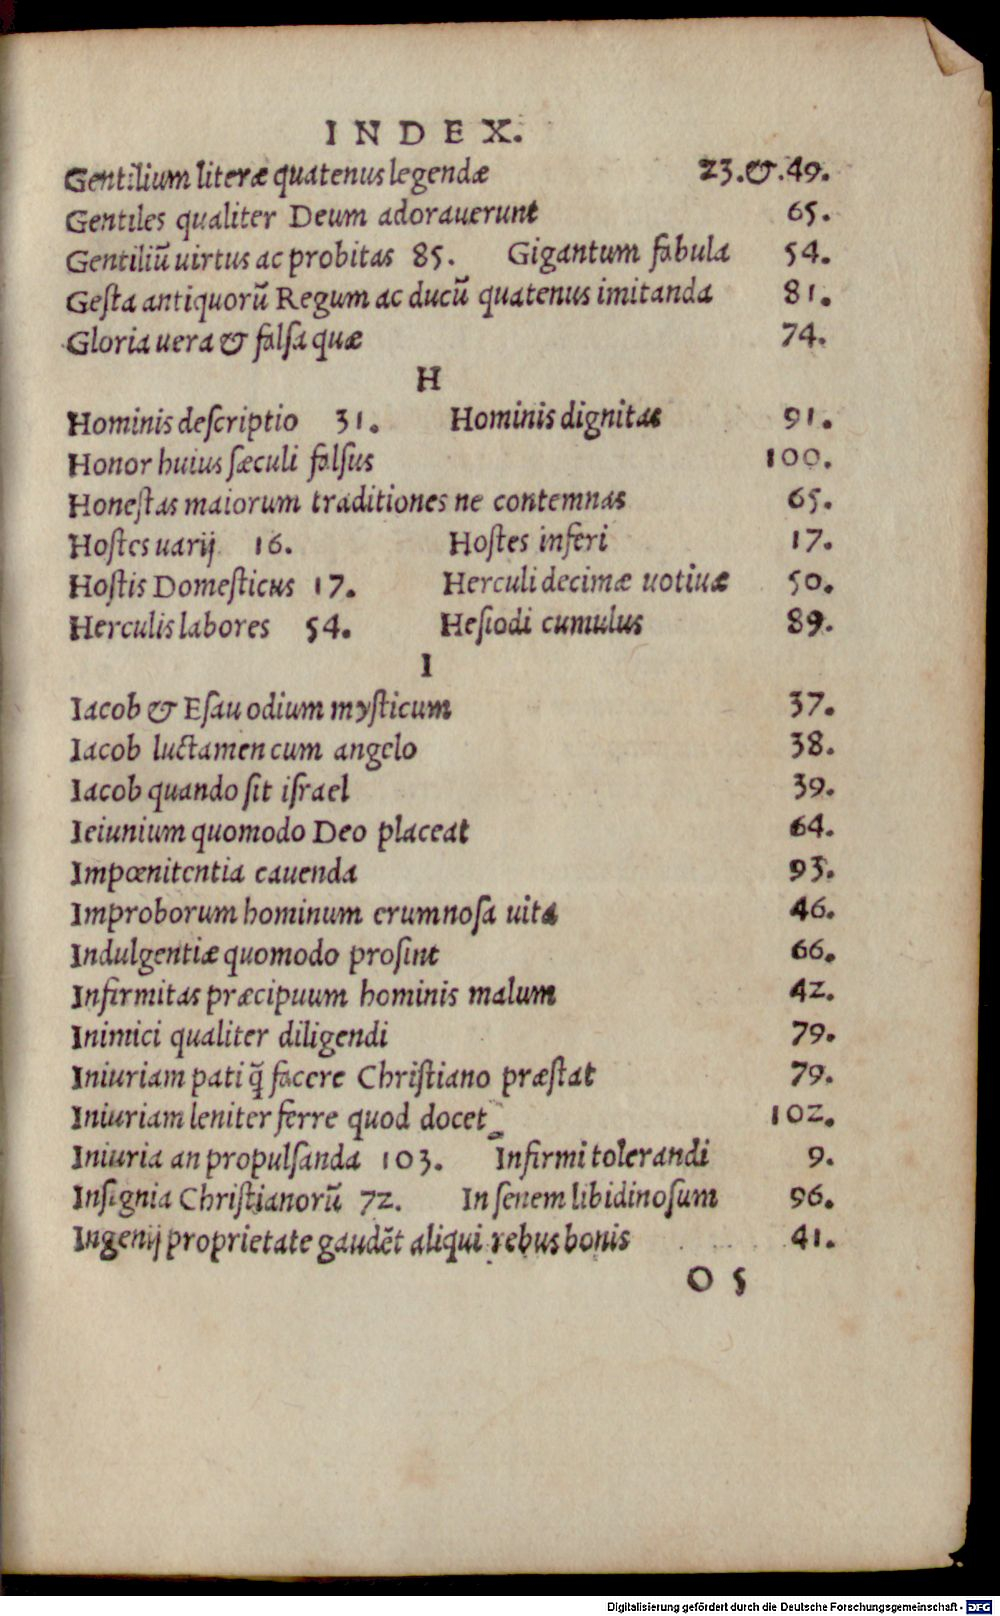 INDEX.
Gentilium literæ quatenus legendæ 23.&.49.
Gentiles qualiter Deum adorauerunt 65.
Gentiliũ uirtus ac probitas 85. Gigantum fabula 54.
Geſta antiquorũ Regum ac ducũ quatenus imitanda 81.
Gloria uera & falſa quæ 74.
H
Hominis deſcriptio 31. Hominis dignitas 91.
Honor huius ſæculi falſus 100.
Honeſtas maiorum traditiones ne contemnas 65.
Hoſtes uarij 16. Hoſtes inferi 17.
Hoſtis Domeſticus 17. Herculi decimæ uotiuæ 50.
Herculis labores 54. Heſiodi cumulus 89.
I
Iacob & Eſau odium myſticum 37.
Iacob luctamen cum angelo 38.
Iacob quando ſit iſrael 39.
Ieiunium quomodo Deo placeat 64.
Impœnitentia cauenda 93.
Improborum hominum erumnoſa uita 46.
Indulgentiæ quomodo proſint 66.
Infirmitas præcipuum hominis malum 42.
Inimici qualiter diligendi 79.
Iniuriam pati q̃ facere Chriſtiano præſtat 79.
Iniuriam leniter ferre quod docet 102.
Iniuria an propulſanda 103. Infirmi tolerandi 9.
Inſignia Chriſtianorũ 72. In ſenem libidinoſum 96.
Ingenij proprietate gaudẽt aliqui rebus bonis 41.
O 5
Digitalisierung gefördert durch die Deutsche Forschungsgemeinschaft - DFG